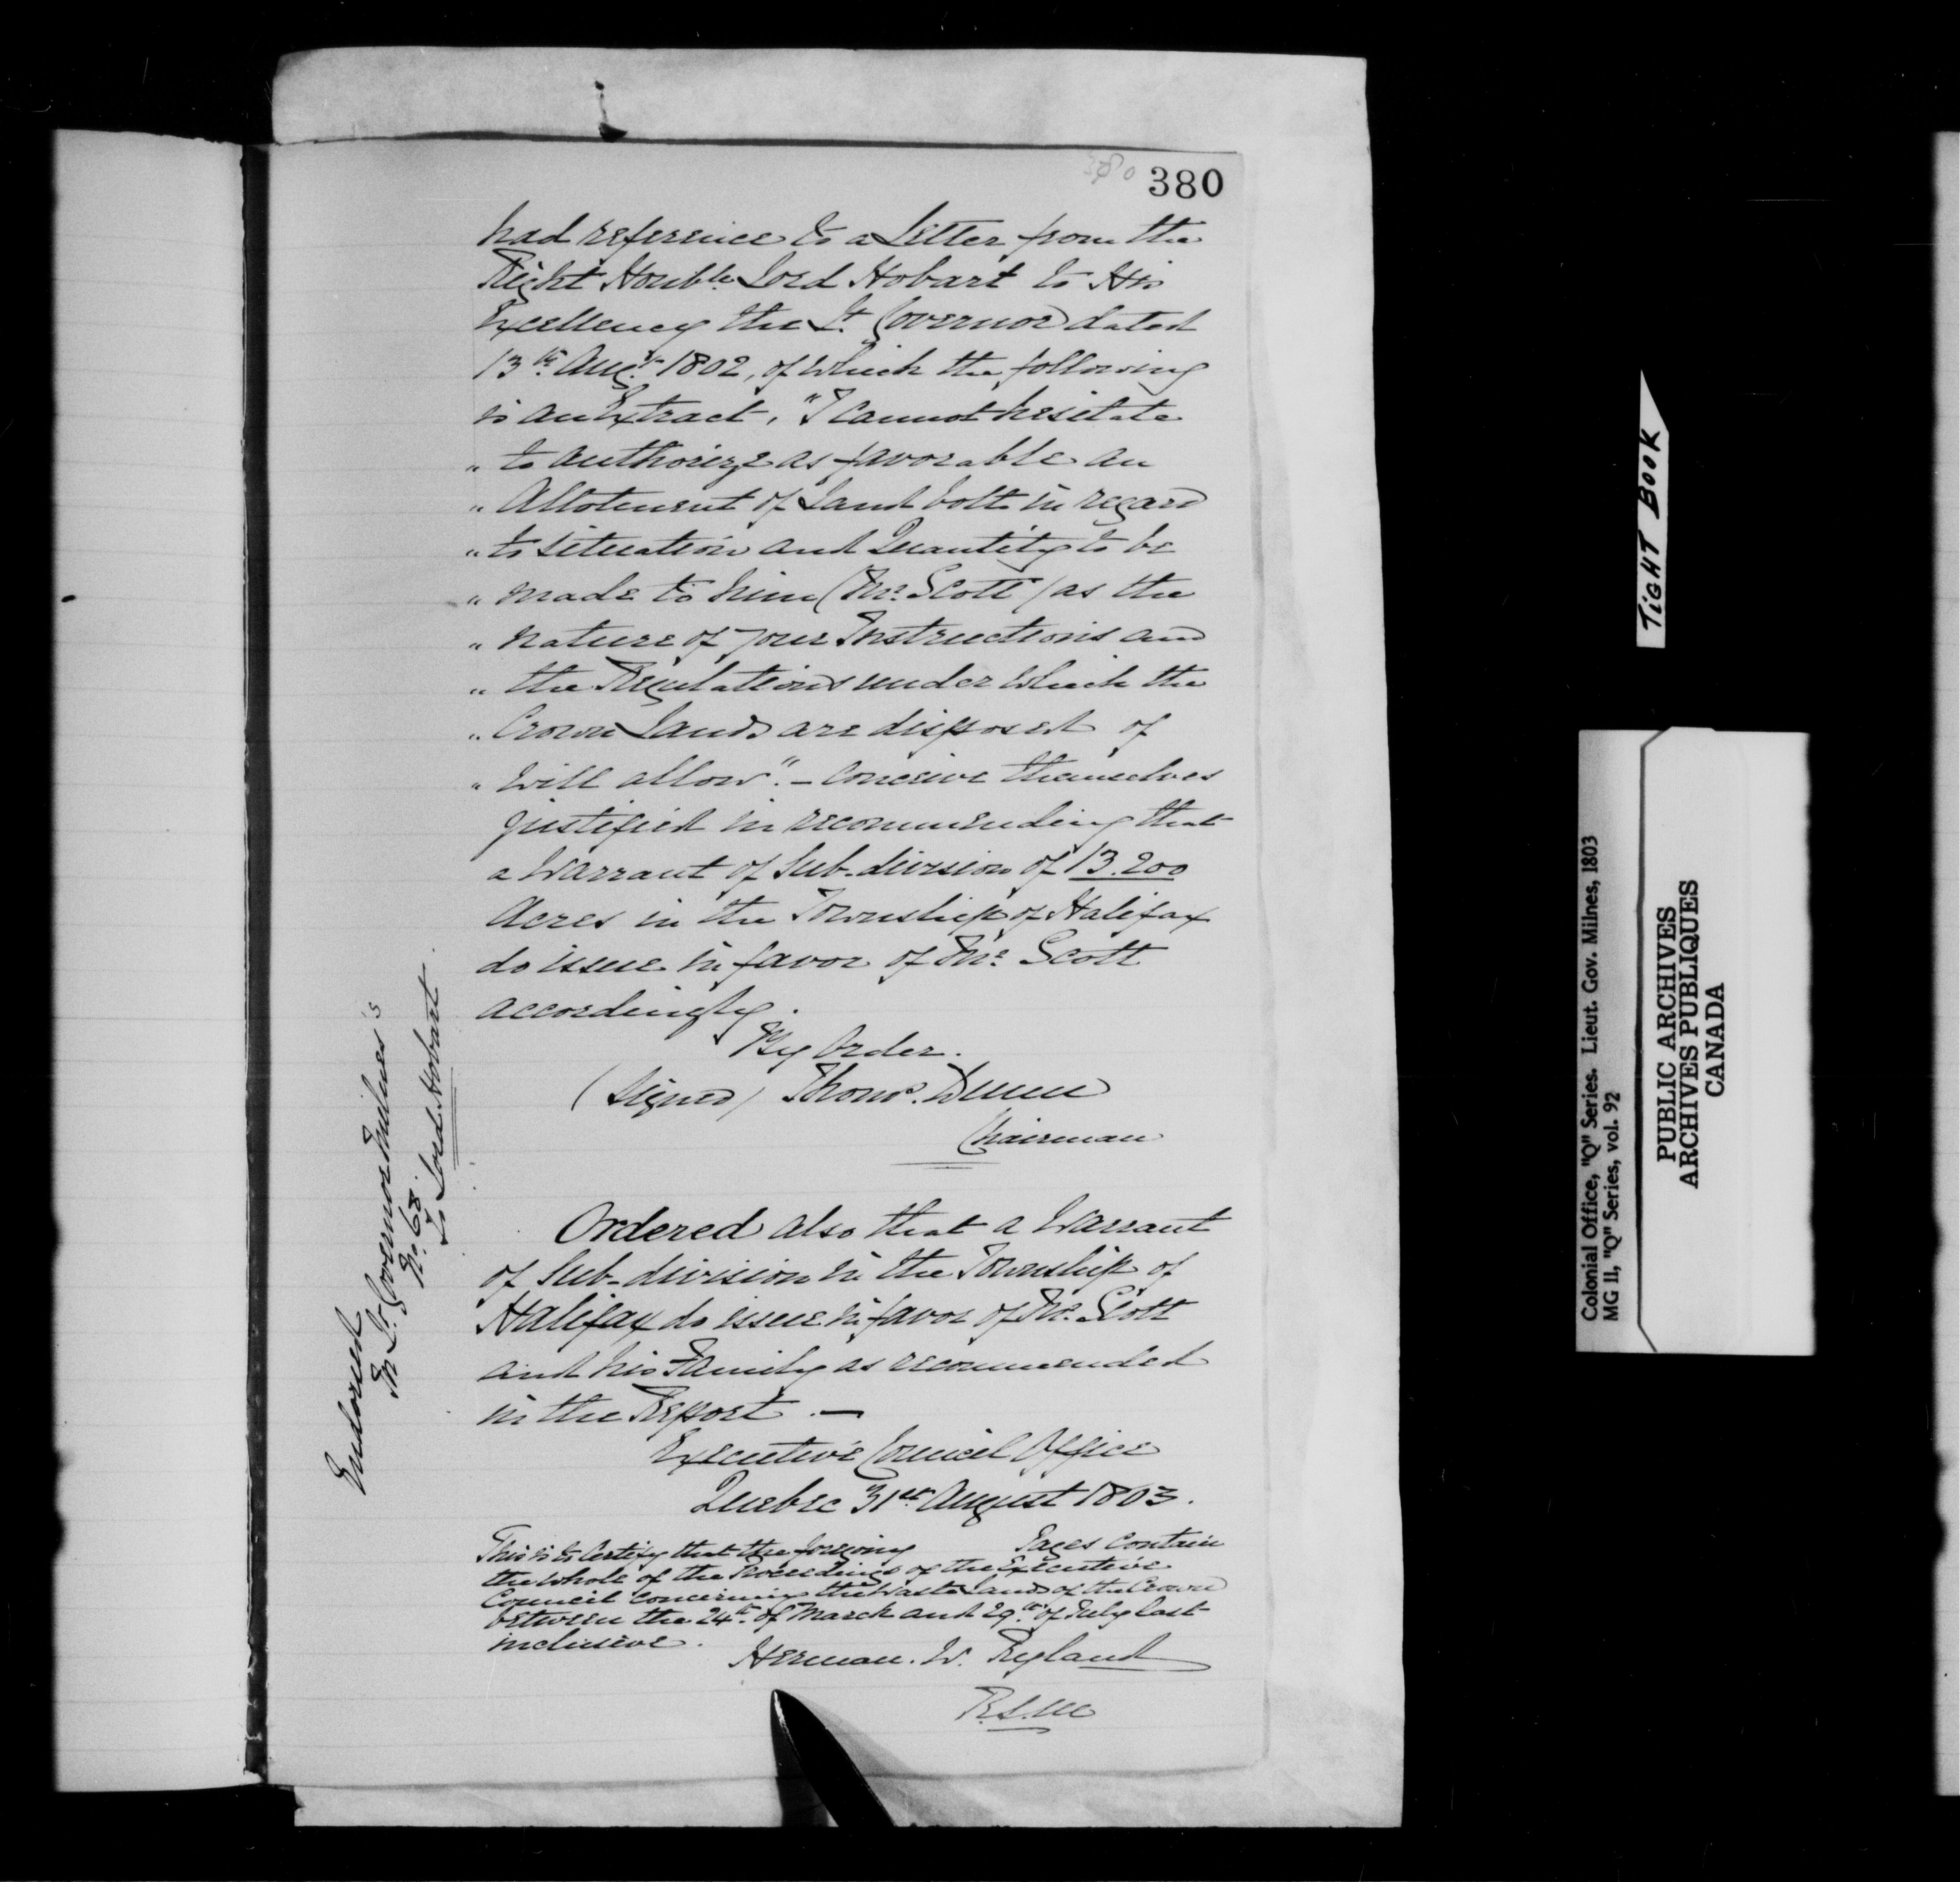 380
380
had reference to a Letter from the
Right Honble. Lord Hobart to His
Excellency the Lt. Governor dated
13th. Augt. 1802, of which the following
is an Extract, "I cannot hesitate
" to authorize as favorable an
" Allotment of Land both in regard
" to situation and Quantity to be
" made to him (Mr. Scott) as the
" nature of your Instructions and
" the Regulations under which the
" Crown Lands are disposed of
" will allow". - conceive themselves
justified in recommending that
a Warrant of Sub-division of 13.200
Acres in the Township of Halifax
do issue in favor of Mr. Scott
accordingly.
By Order.
(Signed) Thoms. Dunn
Chairman
Ordered also that a Warrant
of Sub-division in the Township of
Halifax do issue in favor of Mr. Scott
and his Family as recommended
in the Report. —
Executive Council Office
Quebec 31st. August 1803.
This is to Certify that the foregoing Pages contain
the whole of the Proceedings of the Executive
Council concerning the Waste Lands of the Crown
between the 24th. of March and 29th. of July last
inclusive.
Herman. W. Ryland
Endorsed
In Lt. Governor Milnes's
No. 68.
To Lord Hobart.
TIGHT BOOK
Colonial Office, "Q" Series. Lieut. Gov. Milnes, 1803
MG 11, "Q" Series, vol. 92
PUBLIC ARCHIVES
ARCHIVES PUBLIQUES
CANADA